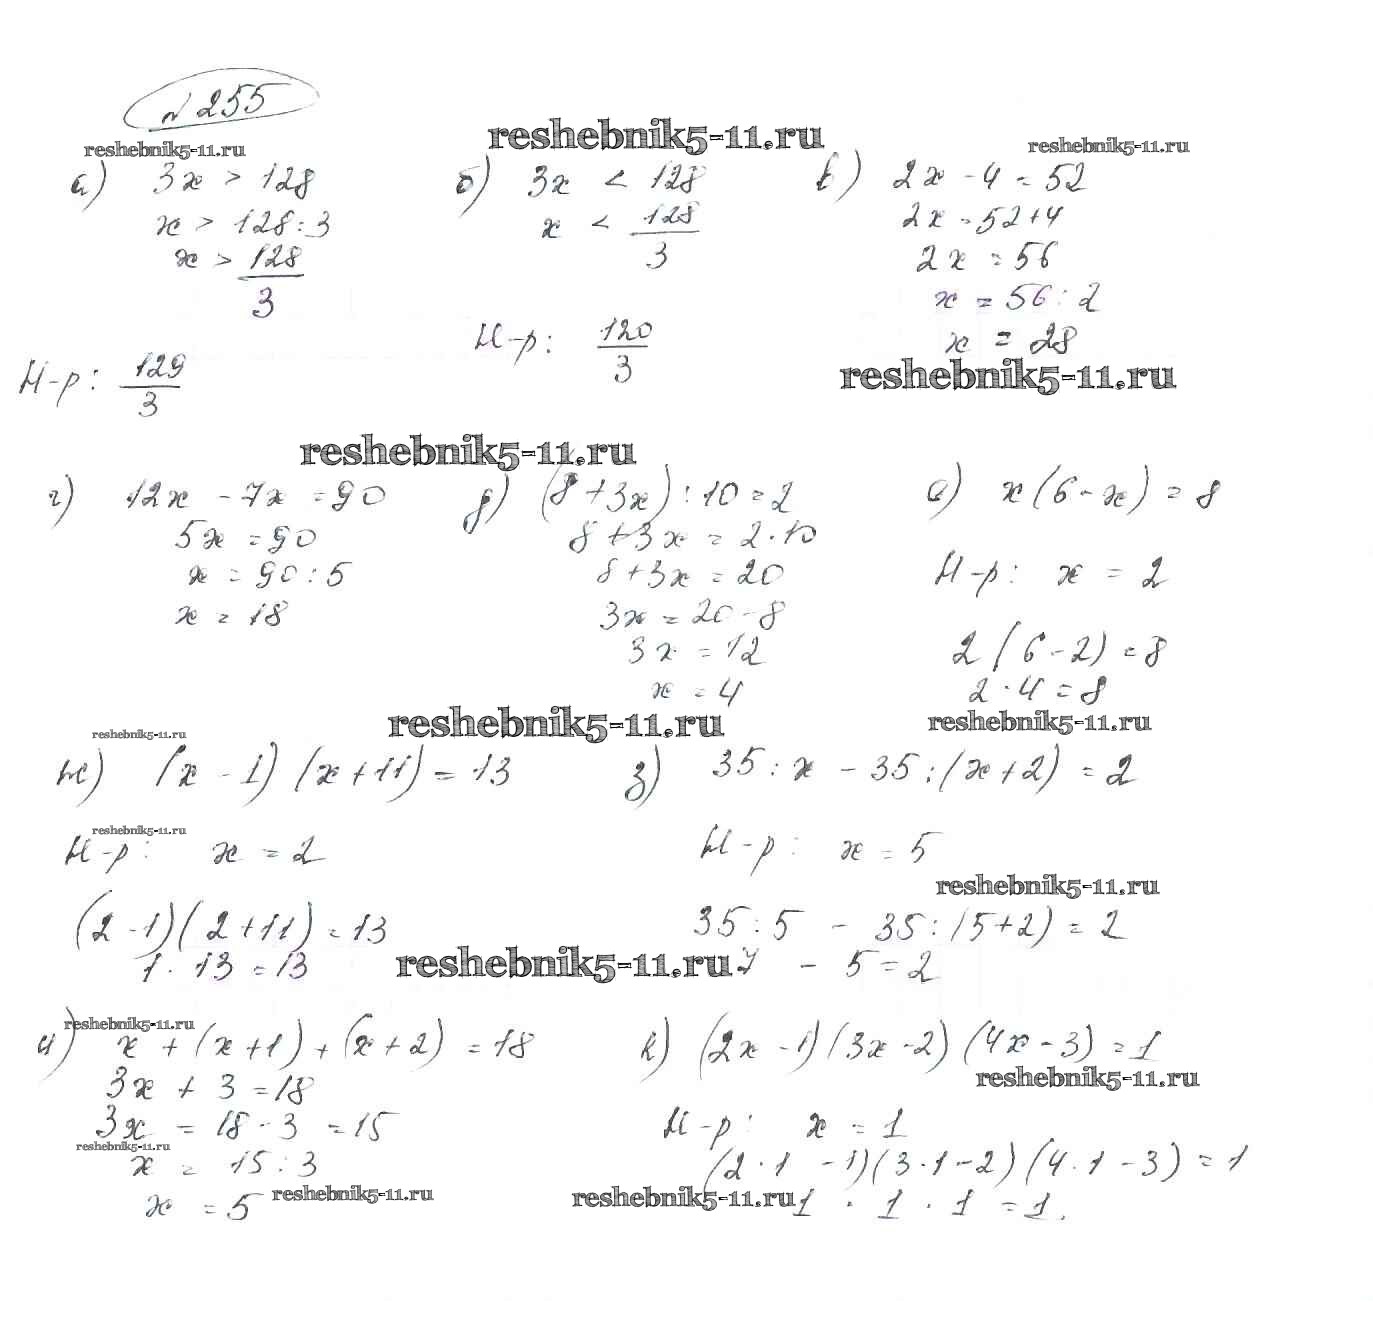 № 255
reshebnik5-11.ru reshebnik5-11.ru reshebnik5-11.ru
а) 3x > 128
x > 128 : 3
x > 128/3
Н-р: 129/3
б) 3x < 128
x < 128/3
Н-р: 120/3
в) 2x - 4 = 52
2x = 52 + 4
2x = 56
x = 56 : 2
x = 28
reshebnik5-11.ru
reshebnik5-11.ru
г) 12x - 7x = 90
5x = 90
x = 90 : 5
x = 18
д) (8 + 3x) : 10 = 2
8 + 3x = 2 · 10
8 + 3x = 20
3x = 20 - 8
3x = 12
x = 4
е) x (6 - x) = 8
Н-р: x = 2
2 (6 - 2) = 8
2 · 4 = 8
reshebnik5-11.ru reshebnik5-11.ru reshebnik5-11.ru
ж) (x - 1) (x + 11) = 13
reshebnik5-11.ru
Н-р: x = 2
(2 - 1) (2 + 11) = 13
1 · 13 = 13
reshebnik5-11.ru
з) 35 : x - 35 : (x + 2) = 2
Н-р: x = 5
reshebnik5-11.ru
35 : 5 - 35 : (5 + 2) = 2
7 - 5 = 2
reshebnik5-11.ru
и) x + (x + 1) + (x + 2) = 18
3x + 3 = 18
3x = 18 - 3 = 15
reshebnik5-11.ru
x = 15 : 3
x = 5
reshebnik5-11.ru
к) (2x - 1) (3x - 2) (4x - 3) = 1
reshebnik5-11.ru
Н-р: x = 1
(2 · 1 - 1) (3 · 1 - 2) (4 · 1 - 3) = 1
reshebnik5-11.ru
1 · 1 · 1 = 1.